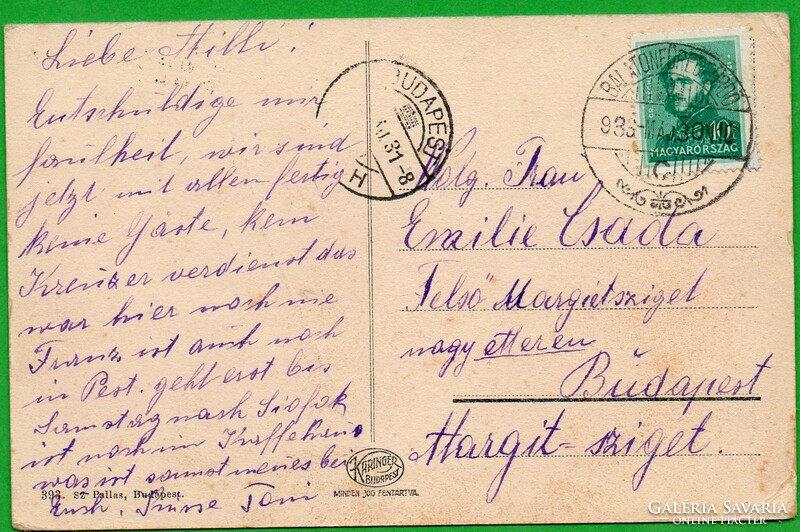 Liebe Milli!
Entschuldige mir
faulheit, wir sind
jetzt mit allen fertig
keine Gäste, kein
Kreuzer verdienst das
war hier noch nie
Franz ist auch noch
in Pest. geht erst bis
Samstag nach Siofok
ist noch im Kaffehaus
was ist sonst neues bei
Euch, Grüsse Toni
393. Sz. Pallas, Budapest.
KARINGER
BUDAPEST
MINDEN JOG FENTARTVA.
BUDAPEST
31-8
H
936 MÁJ 30
10
MAGYARORSZÁG
Wolg. Frau
Emilie Csada
Felső Margietsziget
nagy etteren
Budapest
Margit-sziget.
GALÉRIA SAVARIA
ONLINE PIACTÉR